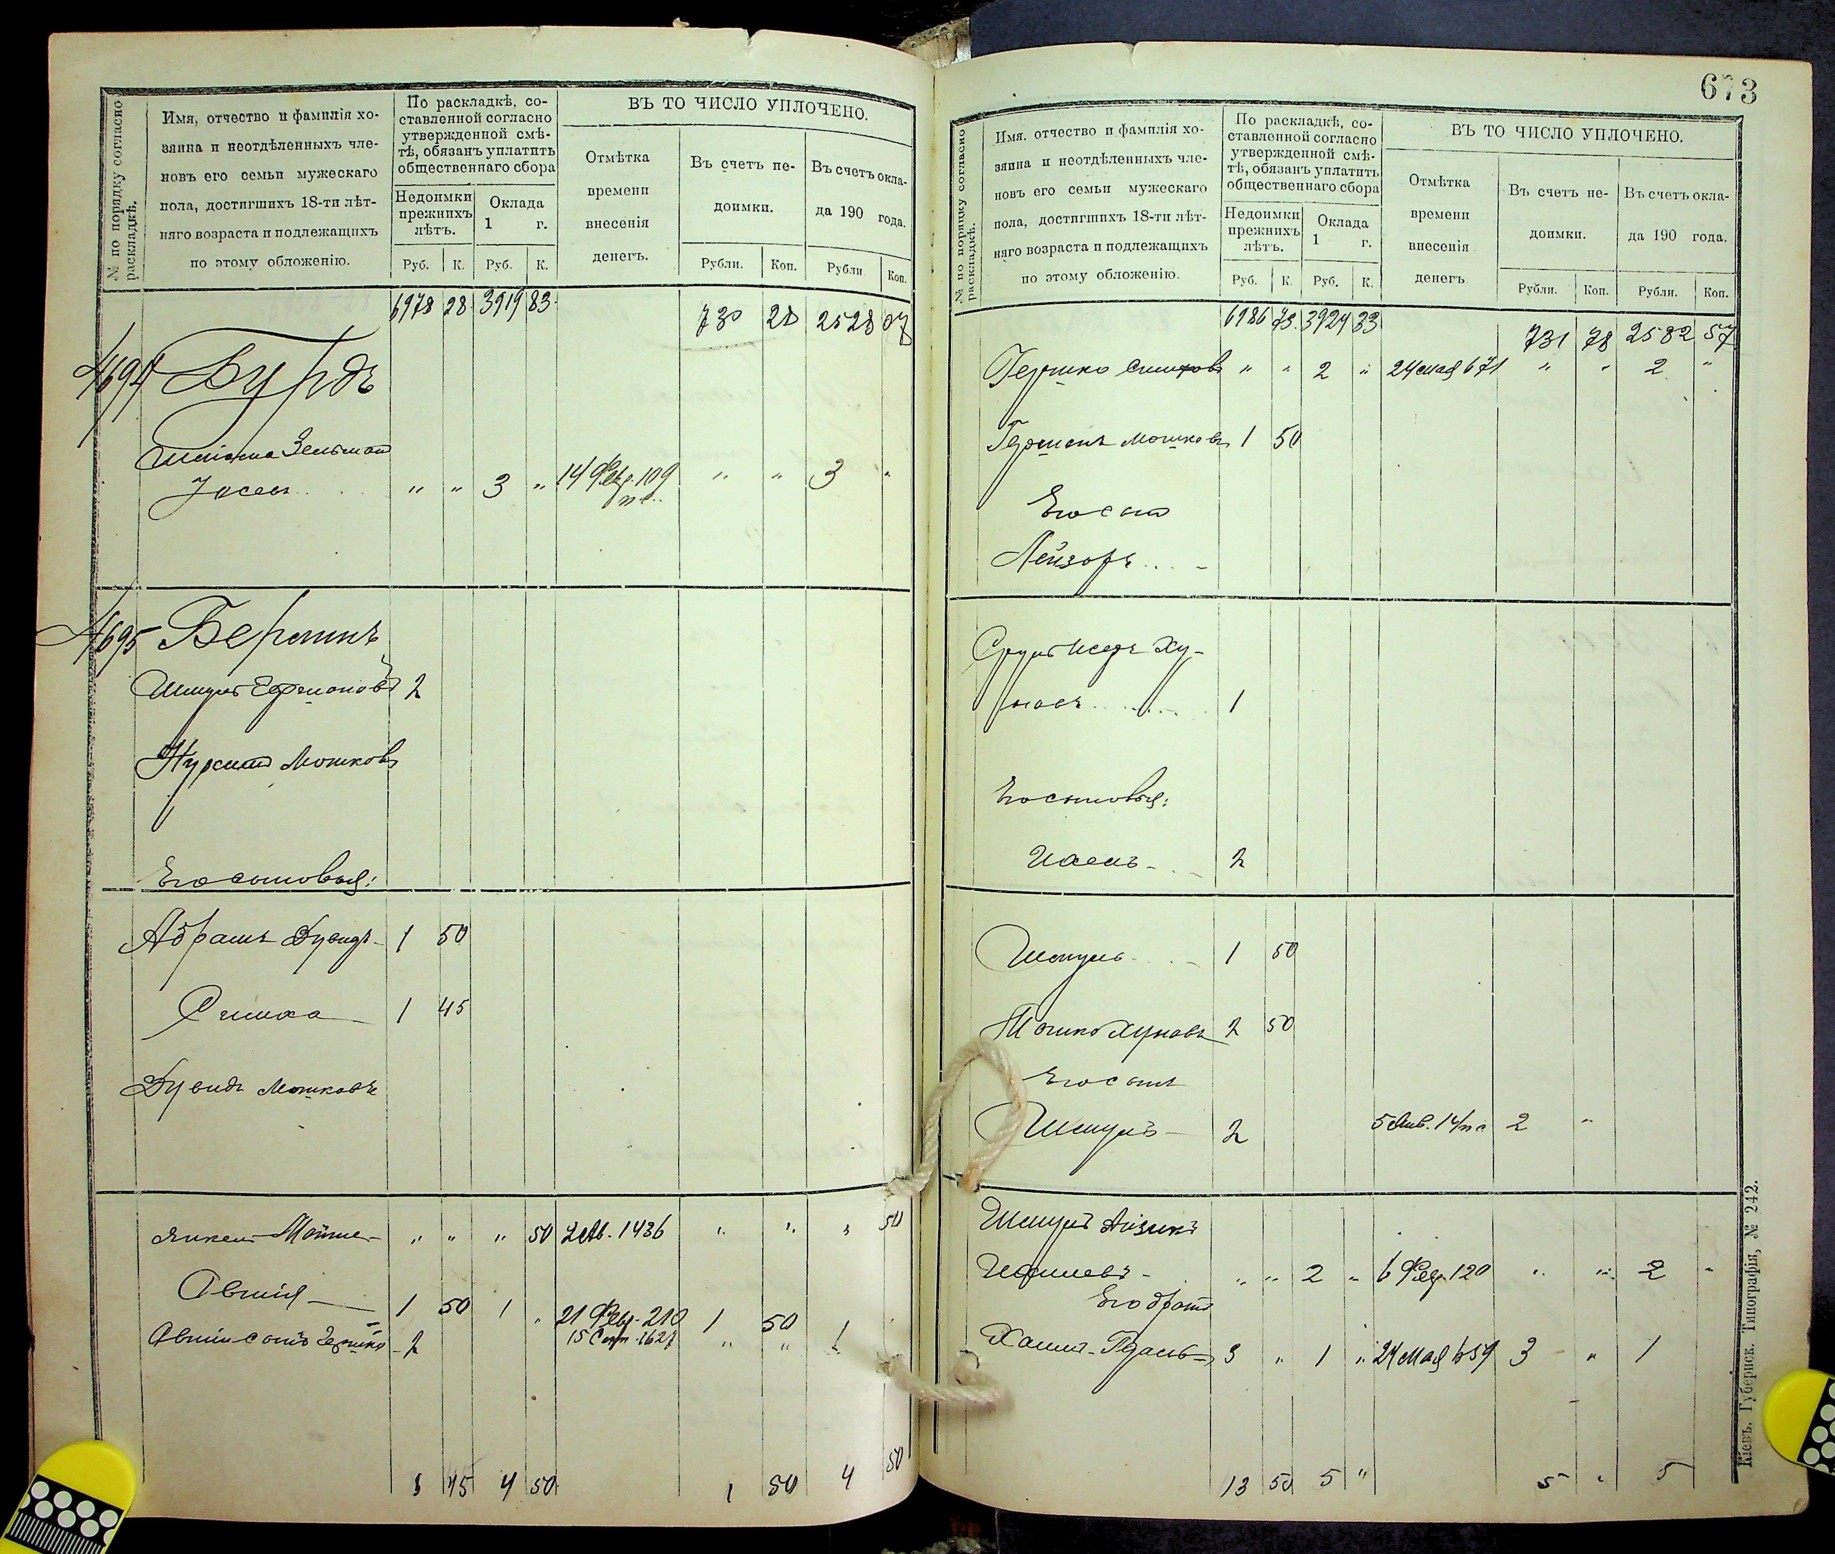 № по порядку согласно раскладкѣ.
Имя, отчество и фамилія хо-
зяина и неотдѣленныхъ чле-
новъ его семьи мужескаго
пола, достигшихъ 18-ти лѣт-
няго возраста и подлежащихъ
по этому обложенію.
По раскладкѣ, со-
ставленной согласно
утвержденной смѣ-
тѣ, обязанъ уплатить
общественнаго сбора
Недоимки
прежнихъ
лѣтъ.
Оклада
1 г.
Руб. К. Руб. К.
ВЪ ТО ЧИСЛО УПЛОЧЕНО.
Отмѣтка
времени
внесенія
денегъ.
Въ счетъ не-
доимки.
Рубли. Коп.
Въ счетъ окла-
да 190 года.
Рубли Коп.
6978 28 3919 83 730 28 2528 07
4694 Бурдъ
Зельман
Іосель " " 3 " 14 Фев. 109 " " 3 "
4695 Берманъ
Шмулъ 2
Мошковъ
Его сыновья:
Абрамъ Дувидъ 1 50
Симха 1 45
Дувидъ Мошковъ
Янкель Мойше " " " 50 1436 " " " 50
Овшія 1 50 1 " 21 Фев. 210 1 50 1
Овшіи сынъ Гершко 2 15 Сент. 1621 " " 1
8 45 4 50 1 50 4 50
673
№ по порядку согласно раскладкѣ.
Имя, отчество и фамилія хо-
зяина и неотдѣленныхъ чле-
новъ его семьи мужескаго
пола, достигшихъ 18-ти лѣт-
няго возраста и подлежащихъ
по этому обложенію.
По раскладкѣ, со-
ставленной согласно
утвержденной смѣ-
тѣ, обязанъ уплатить
общественнаго сбора
Недоимки
прежнихъ
лѣтъ.
Оклада
1 г.
Руб. К. Руб. К.
ВЪ ТО ЧИСЛО УПЛОЧЕНО.
Отмѣтка
времени
внесенія
денегъ.
Въ счетъ не-
доимки.
Рубли. Коп.
Въ счетъ окла-
да 190 года.
Рубли. Коп.
6986 73 3924 33 731 78 2532 57
Гершко " " 2 " 24 мая 671 " " 2 "
Мошковъ 1 50
Его сын
Лейзоръ
Сруль Исеръ Ху-
новъ 1
Его сыновья:
Іосель 2
Шмуль 1 50
Мошко Хуновъ 2 50
Его сынъ
Шмуль 2 5 Янв. 14 2 "
Шмулъ Айзикъ
" " 2 " 6 Фев. 120 " " 2 "
Его братъ
Хаимъ 3 " 1 " 24 Мая 657 3 " 1
13 50 5 " 5 " 5
Кіевъ. Губернск. Типографія, № 242.